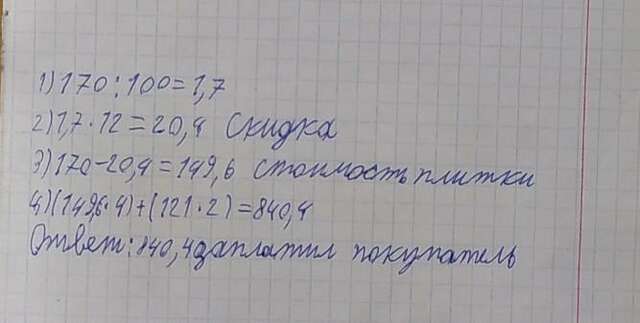 1) 170 : 100 = 1,7
2) 1,7 · 12 = 20,4 Скидка
3) 170 - 20,4 = 149,6 стоимость плитки
4) (149,6 · 4) + (121 · 2) = 840,4
Ответ: 840,4 заплатил покупатель